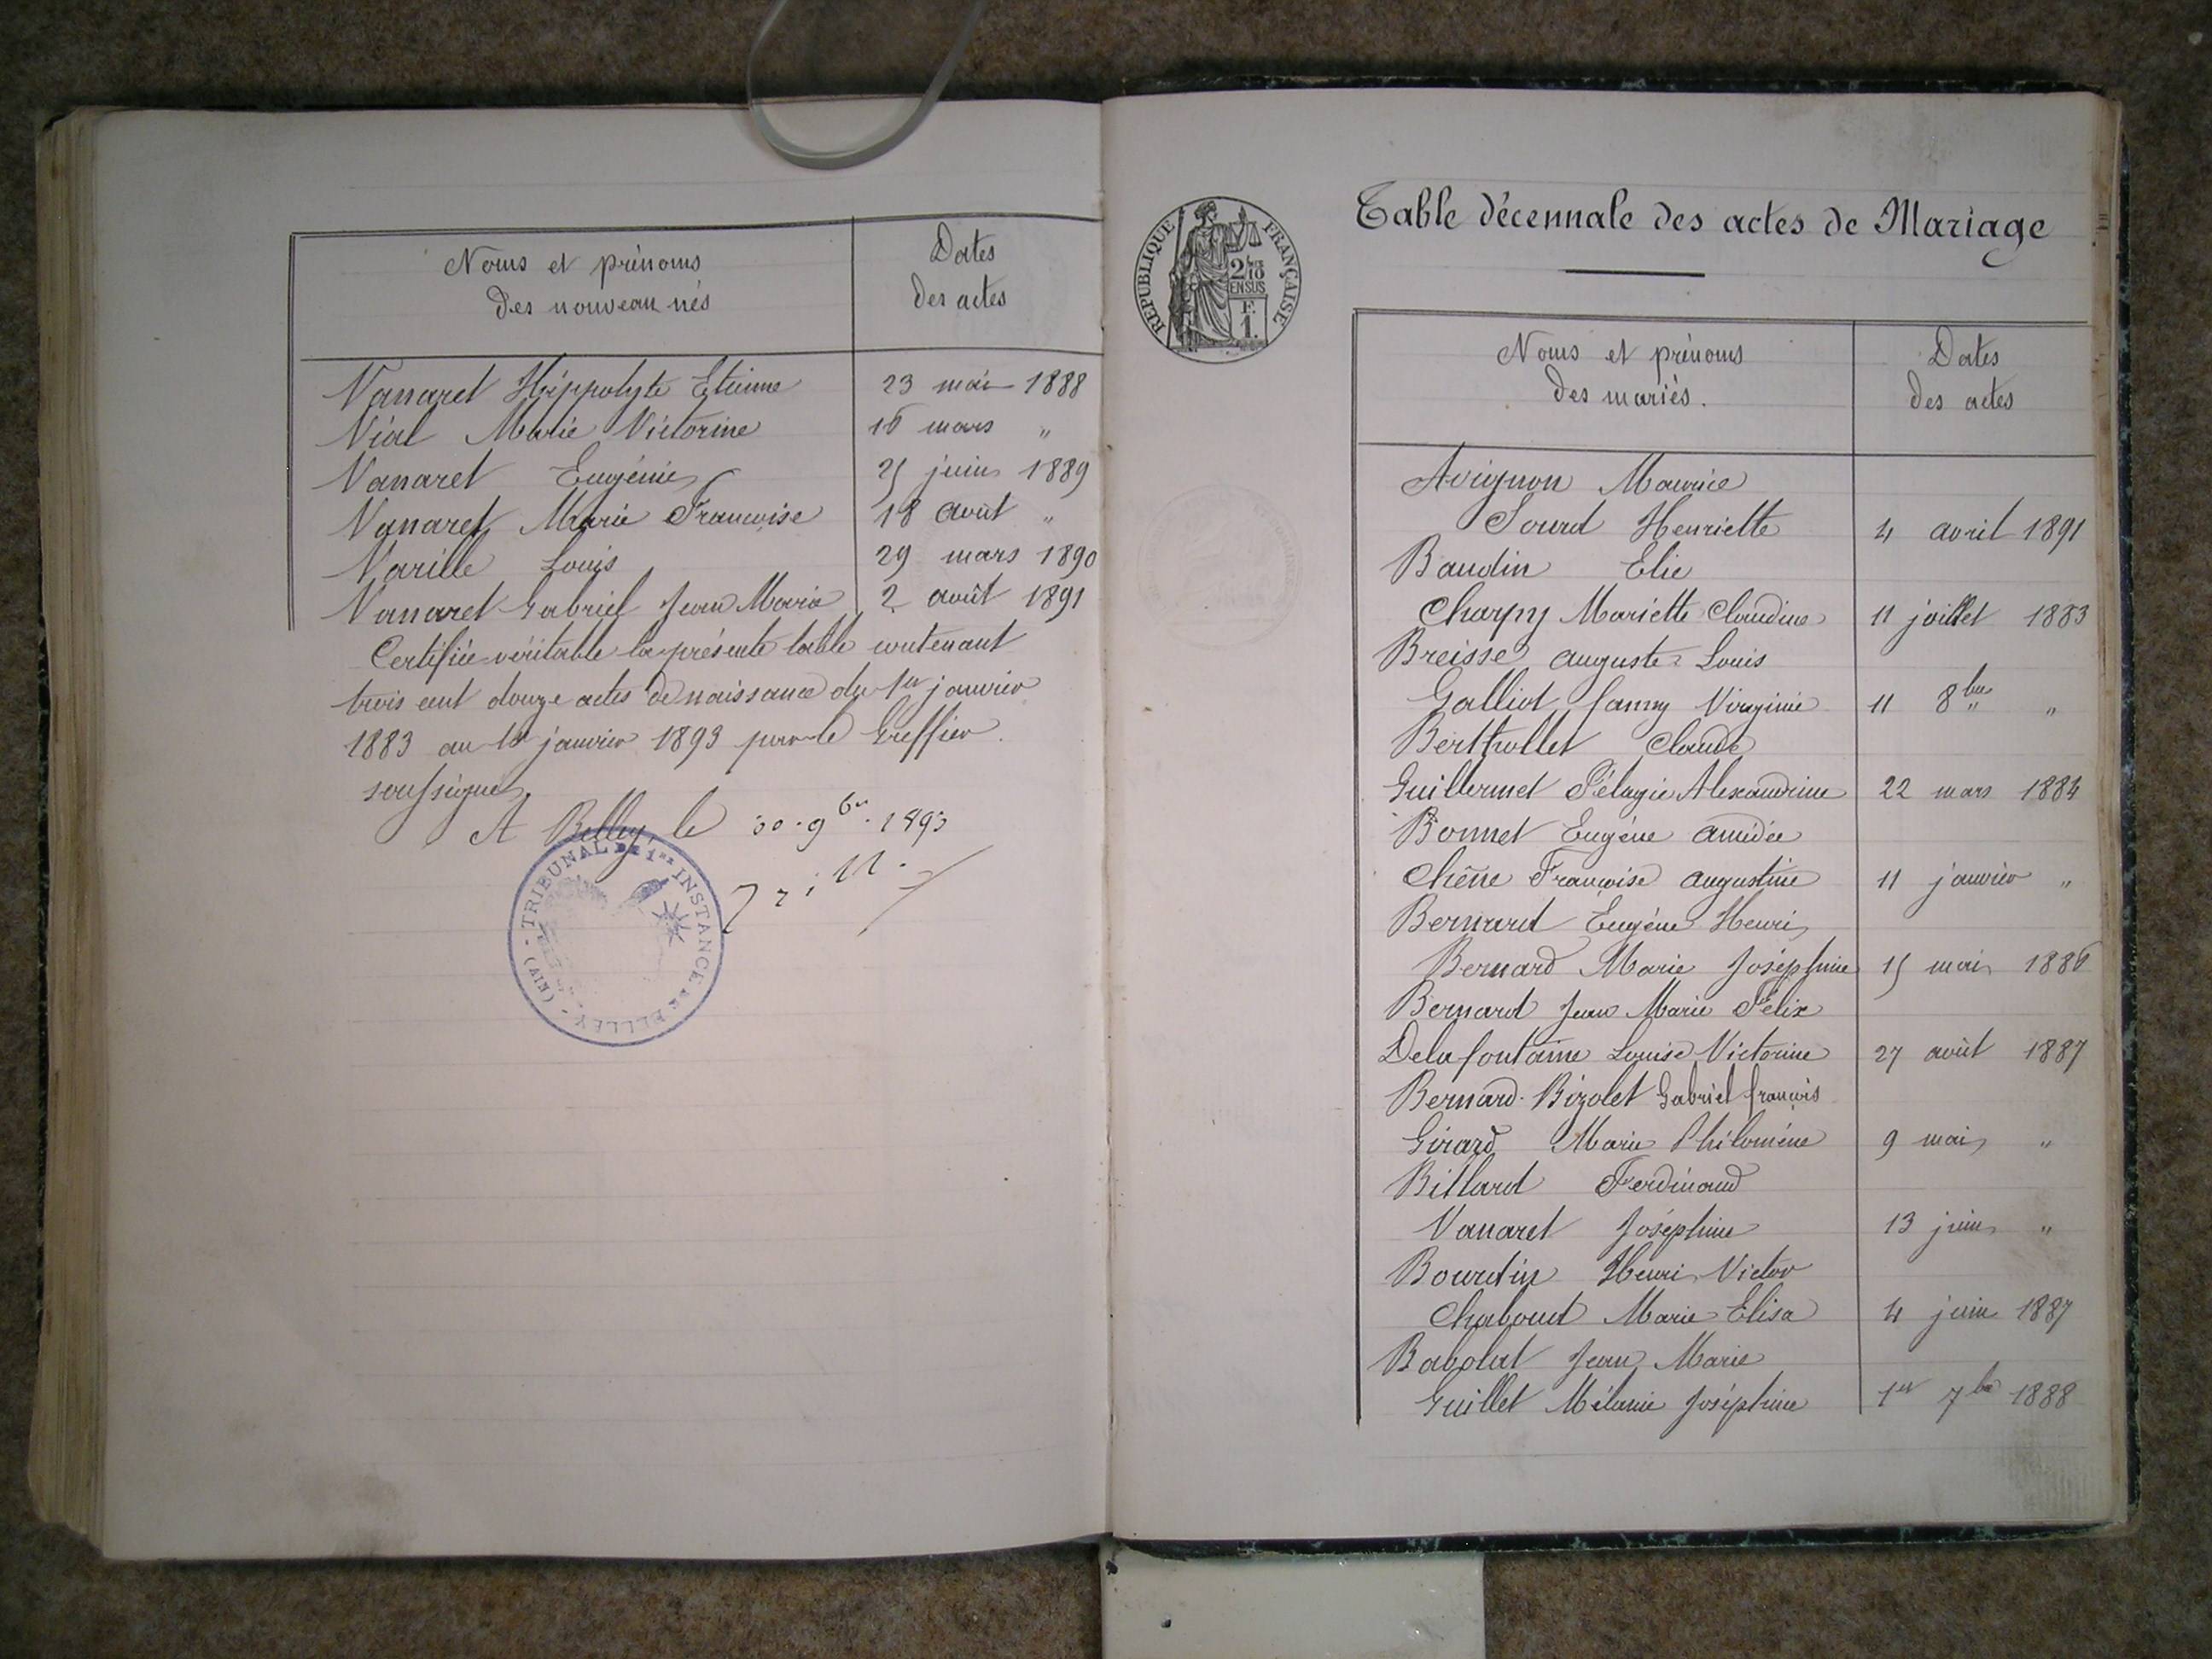 Noms et prénoms
des nouveau nés
Dates
des actes
Vanaret Hippolyte Etienne 23 mai 1888
Vial Marie Victorine 16 mars "
Vanaret Eugénie 25 juin 1889
Vanaret Marie Françoise 18 août "
Varille Louis 29 mars 1890
Vanaret Gabriel Jean Marie 2 août 1891
Certifiée véritable la présente table contenant
trois cent douze actes de naissance du 1er janvier
1883 au 1er janvier 1893 par le Greffier
soussigné
A Belley, le 30 9bre 1893
TRIBUNAL DE 1RE INSTANCE DE BELLEY (AIN)
REPUBLIQUE FRANÇAISE
2/10
EN SUS
F.
1.
Table décennale des actes de Mariage
Noms et prénoms
des mariés.
Dates
des actes
Avignon Maurice
Sourd Henriette 4 avril 1891
Baudin Elie
Charpy Mariette Claudine 11 juillet 1883
Breisse auguste Louis
Galliot fanny Virginie 11 8bre "
Berthollet Claude
Guillermet Pélagie Alexandrine 22 mars 1884
Bonnet Eugène amédée
Chêne Françoise augustine 11 janvier "
Bernard Eugène Henri
Bernard Marie Joséphine 15 mai 1886
Bernard Jean Marie Félix
Delafontaine Louise Victorine 27 août 1887
Bernard-Bizolet Gabriel françois
Girard Marie Philomène 9 mai "
Billard Ferdinand
Vanaret Joséphine 13 juin "
Bourdin Henri Victor
Chaboud Marie Elisa 4 juin 1887
Babolat Jean Marie
Guillet Mélanie Joséphine 1er 7bre 1888